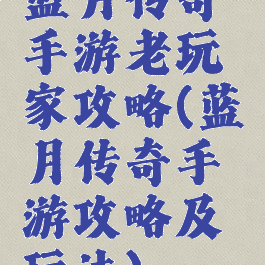 蓝月传奇
手游老玩
家攻略(蓝
月传奇手
游攻略及
玩法)